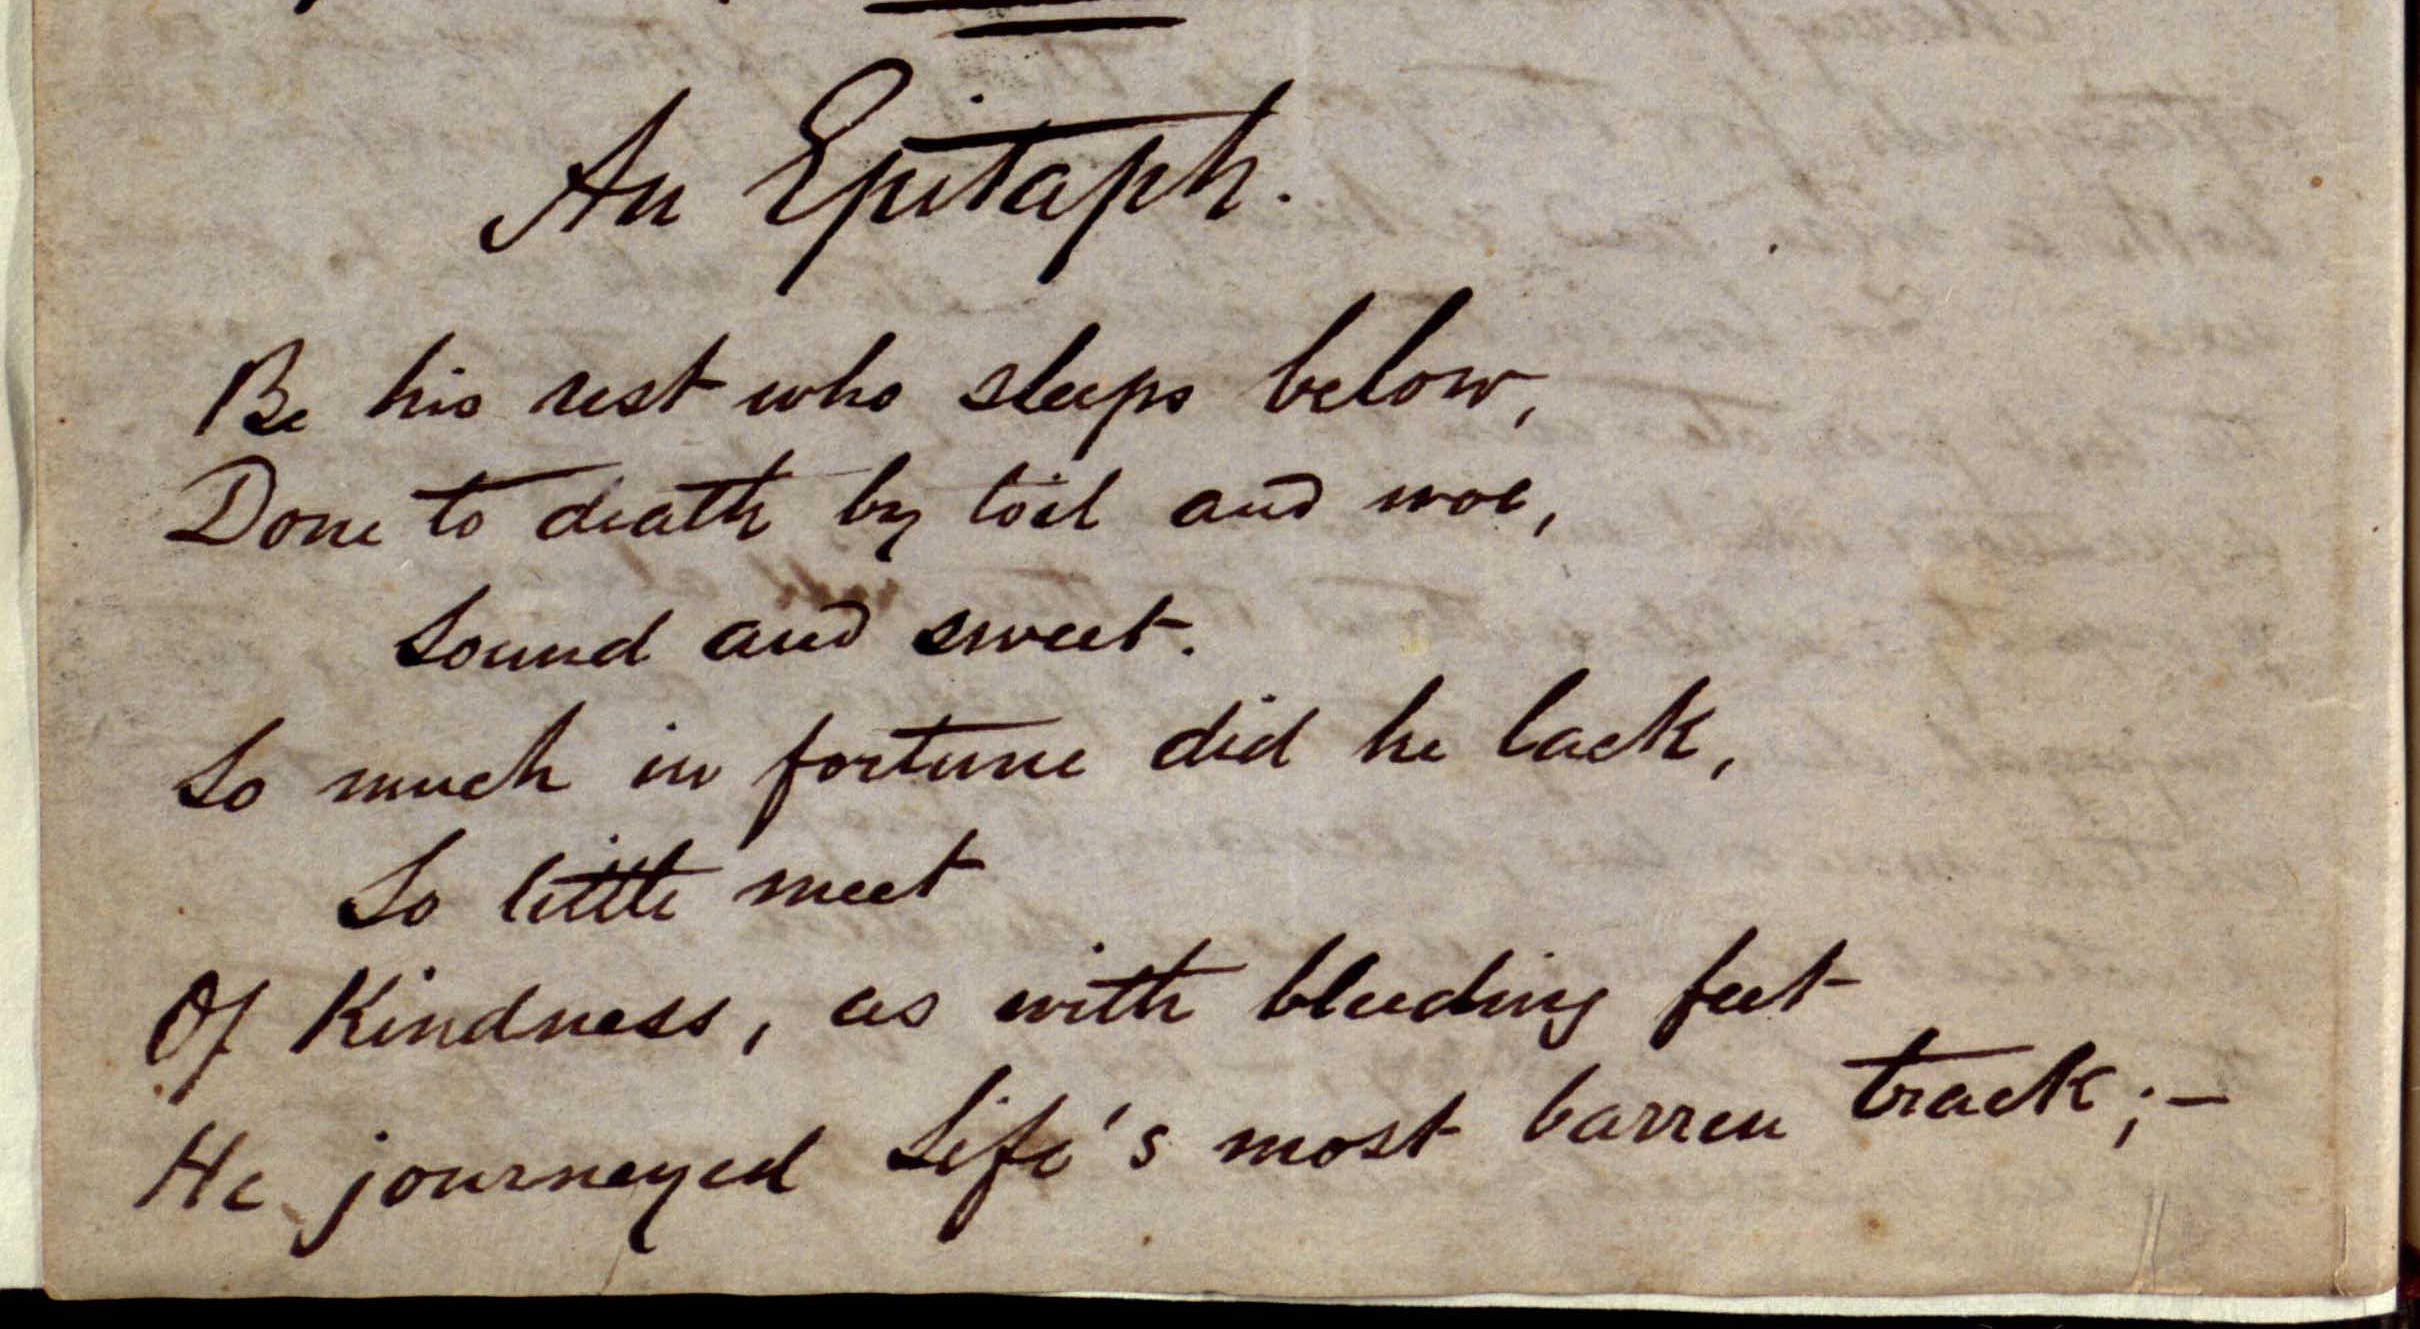 An Epitaph.
Be his rest who sleeps below,
Done to death by toil and woe,
Sound and sweet.
So much in fortune did he lack,
So little meet
Of Kindness, as with bleeding feet
He journeyed Life's most barren track;—